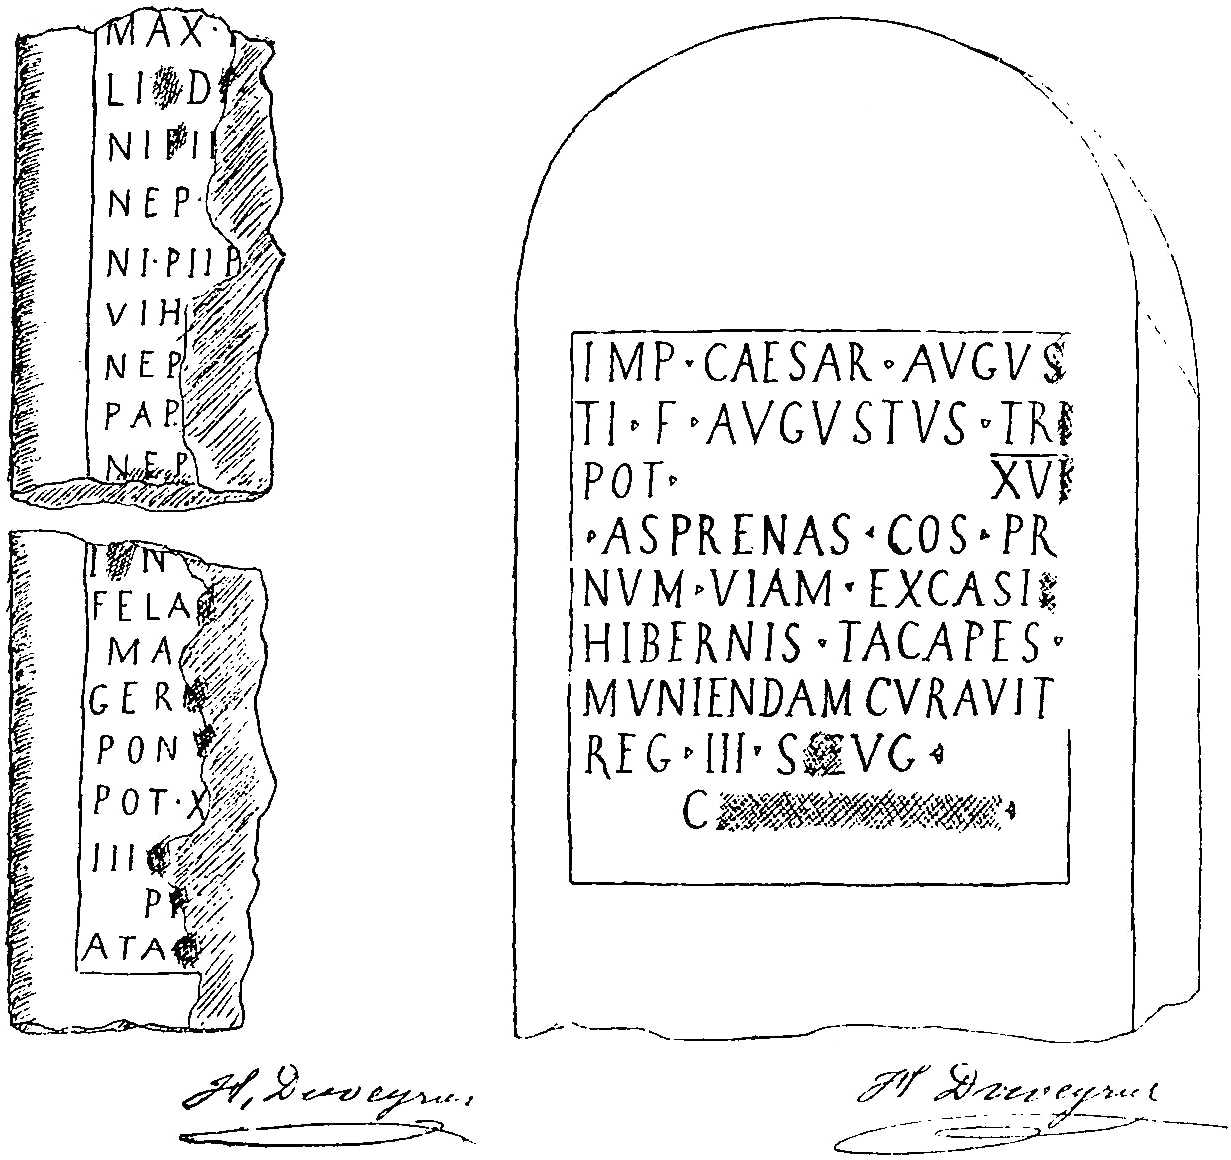 MAX·
LI D
NI PII
NEP·
NI·PIIP
VIH
NEP
PAP
NEP
I N
FELA
MA
GER
PON
POT·X
III
P
ATA
H. Duveyrier
IMP·CAESAR·AVGVS
TI·F·AVGVSTVS·TRI
POT· XV
·ASPRENAS·COS·PR
NVM·VIAM·EXCASI
HIBERNIS·TACAPES·
MVNIENDAM CVRAVIT
REG·III·S VG
C
H Duveyrier